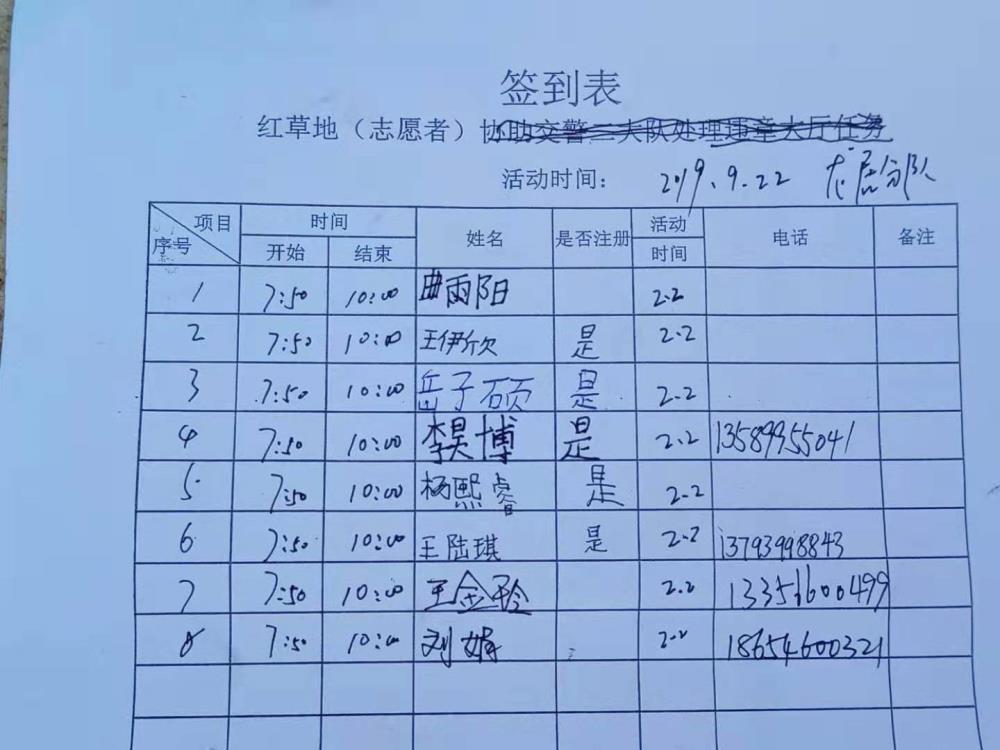 签到表
红草地（志愿者）协助交警二大队处理违章大厅任务
活动时间： 2019.9.22 龙居分队
项目 时间 姓名 是否注册 活动 电话 备注
序号 开始 结束 时间
1 7:50 10:00 曲雨阳 2.2
2 7:50 10:00 王伊欣 是 2.2
3 7:50 10:00 岳子硕 是 2.2
4 7:50 10:00 李昊博 是 2.2 13589955041
5 7:50 10:00 杨熙睿 是 2.2
6 7:50 10:00 王陆琪 是 2.2 13793998843
7 7:50 10:00 王金玲 2.2 13351600499
8 7:50 10:00 刘娟 2.2 18654600321